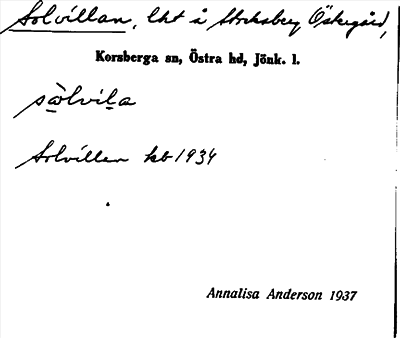 Solvillan, lht å Stocksberg Östregård,
Korsberga sn, Östra hd, Jönk. l.
sòlvila
Solvillan kb 1934
Annalisa Anderson 1937